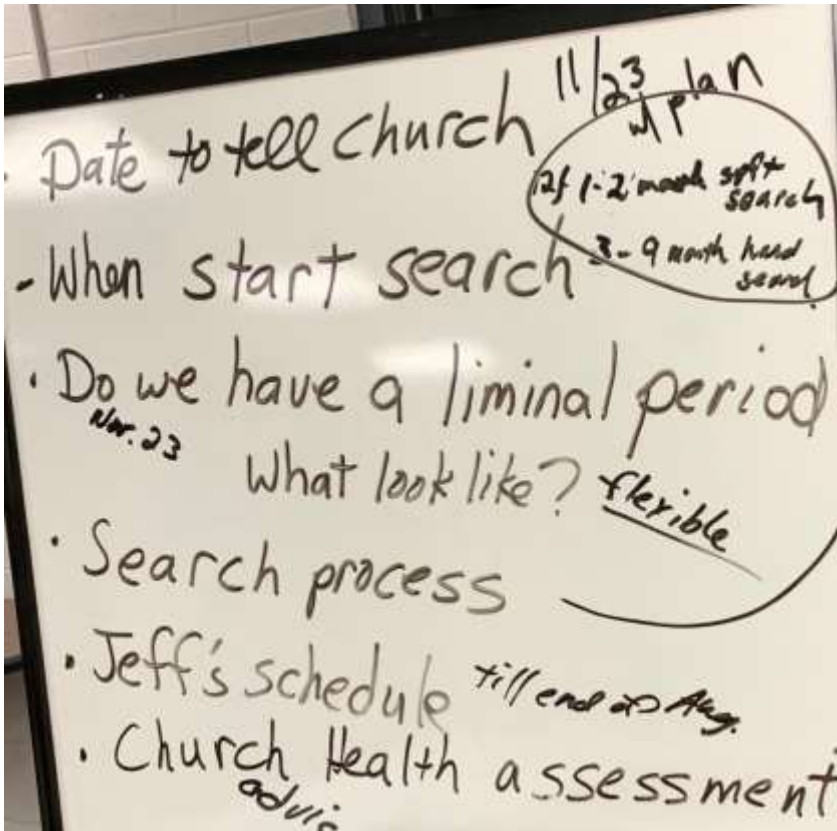 · Date to tell church 11/23 w/ plan
1-2 month soft search
- When start search 3-9 month hard search
· Do we have a liminal period
Nov. 23
What look like? flexible
· Search process
· Jeff's schedule till end of Aug.
· Church Health assessment